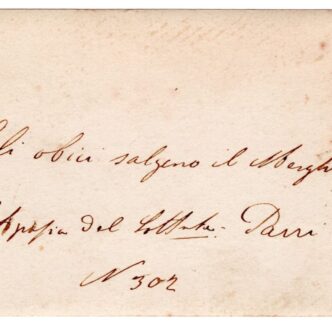 li obici salgono il Mergh
del Sottote. Parri
N 302